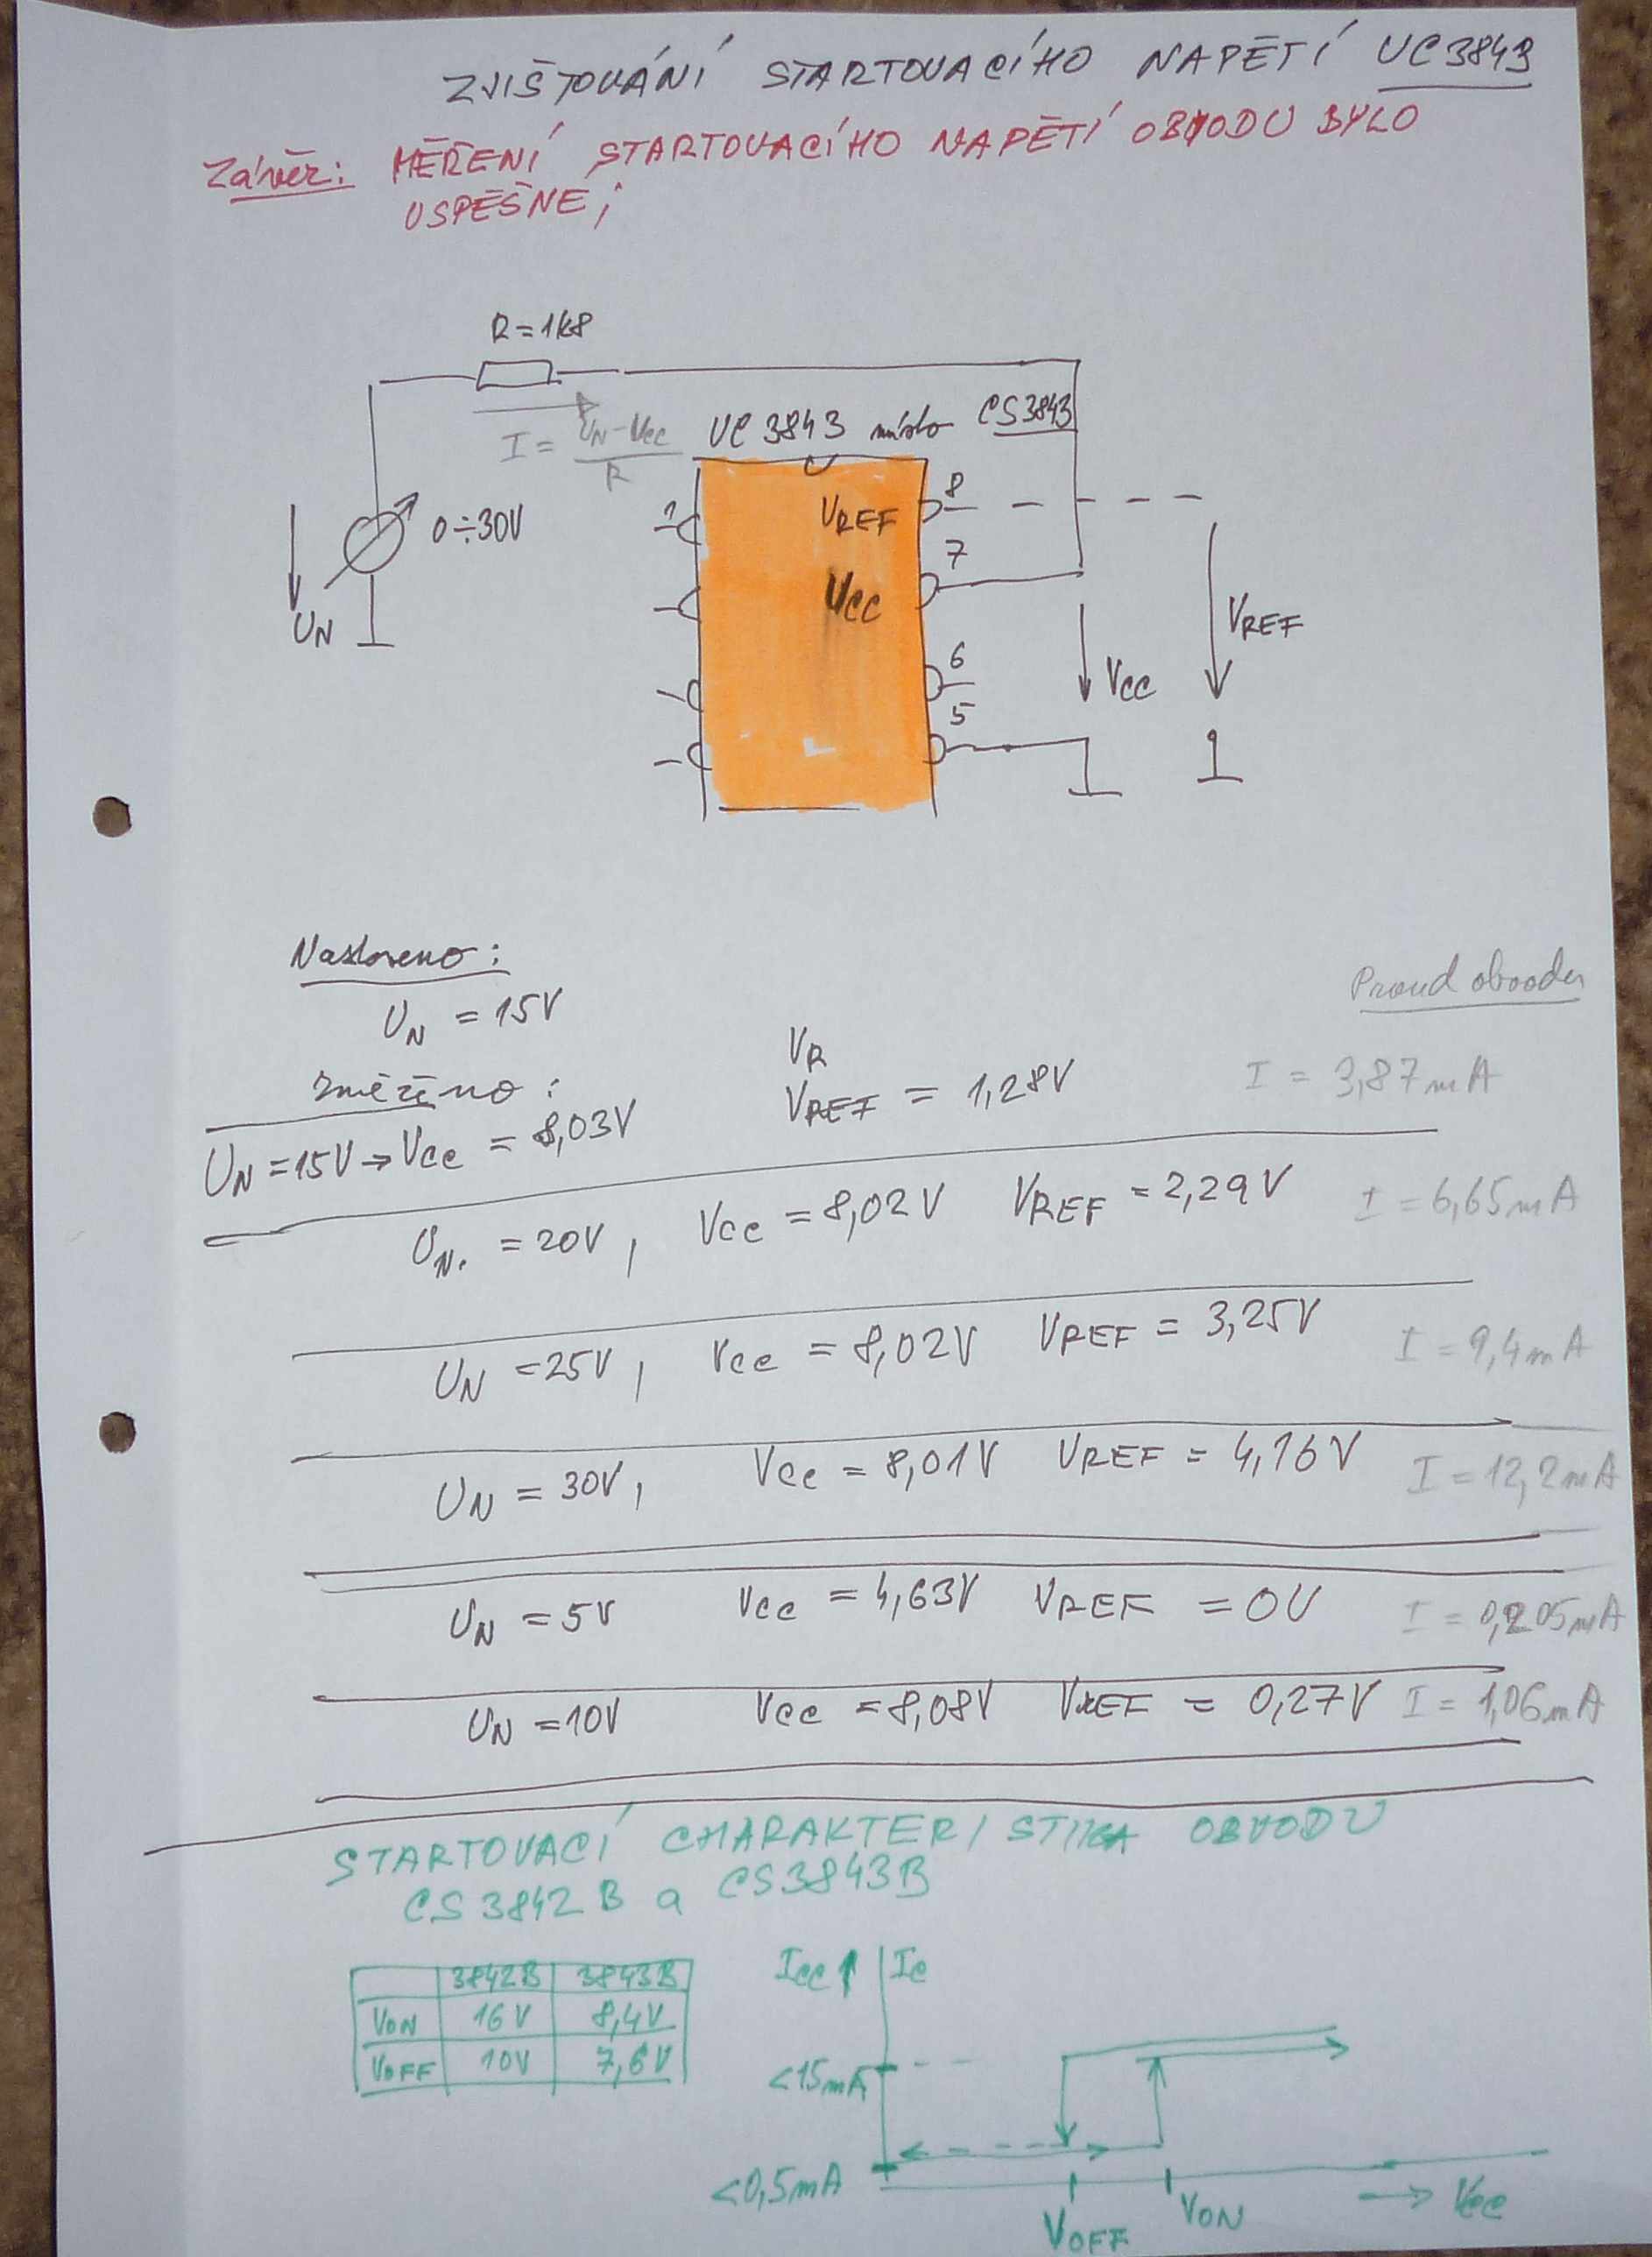 ZJIŠŤOVÁNÍ STARTOVACÍHO NAPĚTÍ UC3843
Závěr: MĚŘENÍ STARTOVACÍHO NAPĚTÍ OBVODU BYLO
USPĚŠNÉ;
R=1k8
I = UN-VCC / R
UC 3843 místo CS3843
1
VREF
8
0÷30V
7
VCC
UN
VREF
6
VCC
5
Nastaveno:
Proud obvodu
UN = 15V
VR
změřeno:
VREF = 1,28V
I = 3,87mA
UN=15V→VCC = 8,03V
UN. = 20V, VCC = 8,02V VREF = 2,29V I = 6,65mA
UN = 25V, VCC = 8,02V VREF = 3,25V I = 9,4mA
UN = 30V, VCC = 8,01V VREF = 4,16V I = 12,2mA
UN = 5V VCC = 4,63V VREF = 0V I = 0,205mA
UN = 10V VCC = 8,08V VREF = 0,27V I = 1,06mA
STARTOVACÍ CHARAKTERISTIKA OBVODU
CS3842B a CS3843B
3842B 3843B
VON 16V 8,4V
VOFF 10V 7,6V
ICC IC
<15mA
<0,5mA
VOFF VON VCC